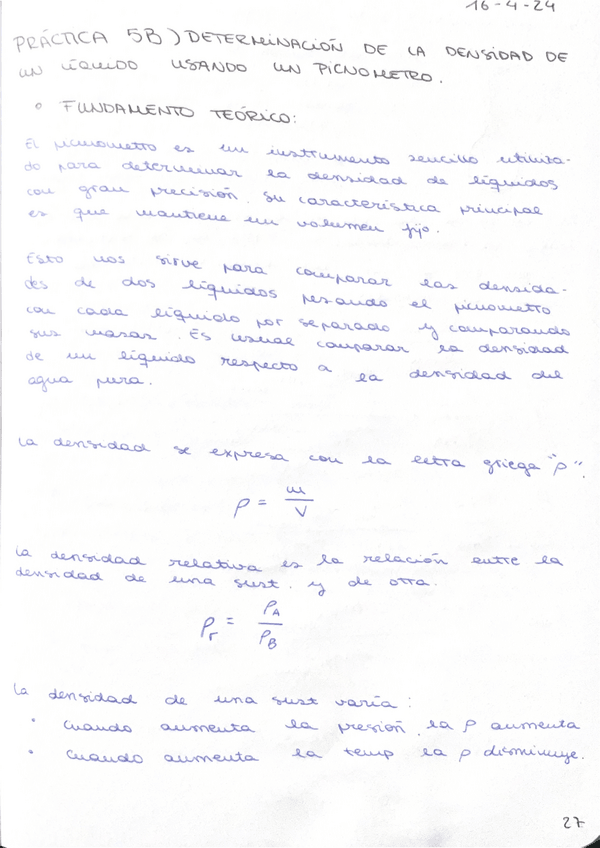 16-4-24
PRÁCTICA 5B) DETERMINACIÓN DE LA DENSIDAD DE
UN LÍQUIDO USANDO UN PICNOMETRO.
• FUNDAMENTO TEÓRICO:
El picnometro es un instrumento sencillo utiliza-
do para determinar la densidad de líquidos
con gran precisión. Su característica principal
es que mantiene un volumen fijo.
Esto nos sirve para comparar las densida-
des de dos líquidos pesando el picnometro
con cada líquido por separado y comparando
sus masas. Es usual comparar la densidad
de un líquido respecto a la densidad del
agua pura.
La densidad se expresa con la letra griega "ρ".
ρ = m/V
La densidad relativa es la relación entre la
densidad de una sust. y de otra.
ρr = ρA/ρB
La densidad de una sust varía:
• Cuando aumenta la presión, la ρ aumenta
• Cuando aumenta la temp la ρ disminuye.
27